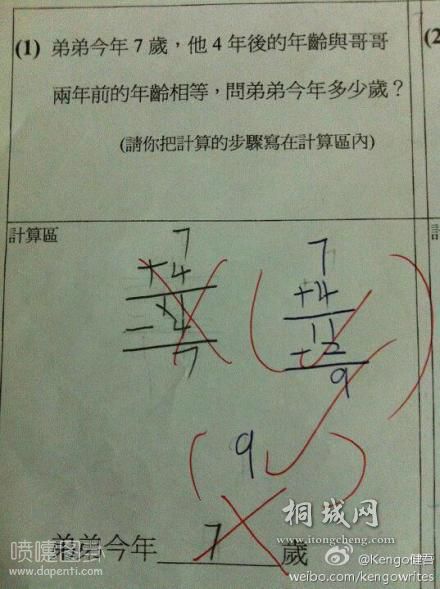 (1) 弟弟今年 7 歲，他 4 年後的年齡與哥哥
兩年前的年齡相等，問弟弟今年多少歲？
(請你把計算的步驟寫在計算區內)
(2
計算區
7
+4
11
- 4
7
7
+4
11
- 2
9
( 9 )
弟弟今年 7 歲
桐城网
www.itongcheng.com
喷嚏图卦
www.dapenti.com
@Kengo健吾
weibo.com/kengowrites